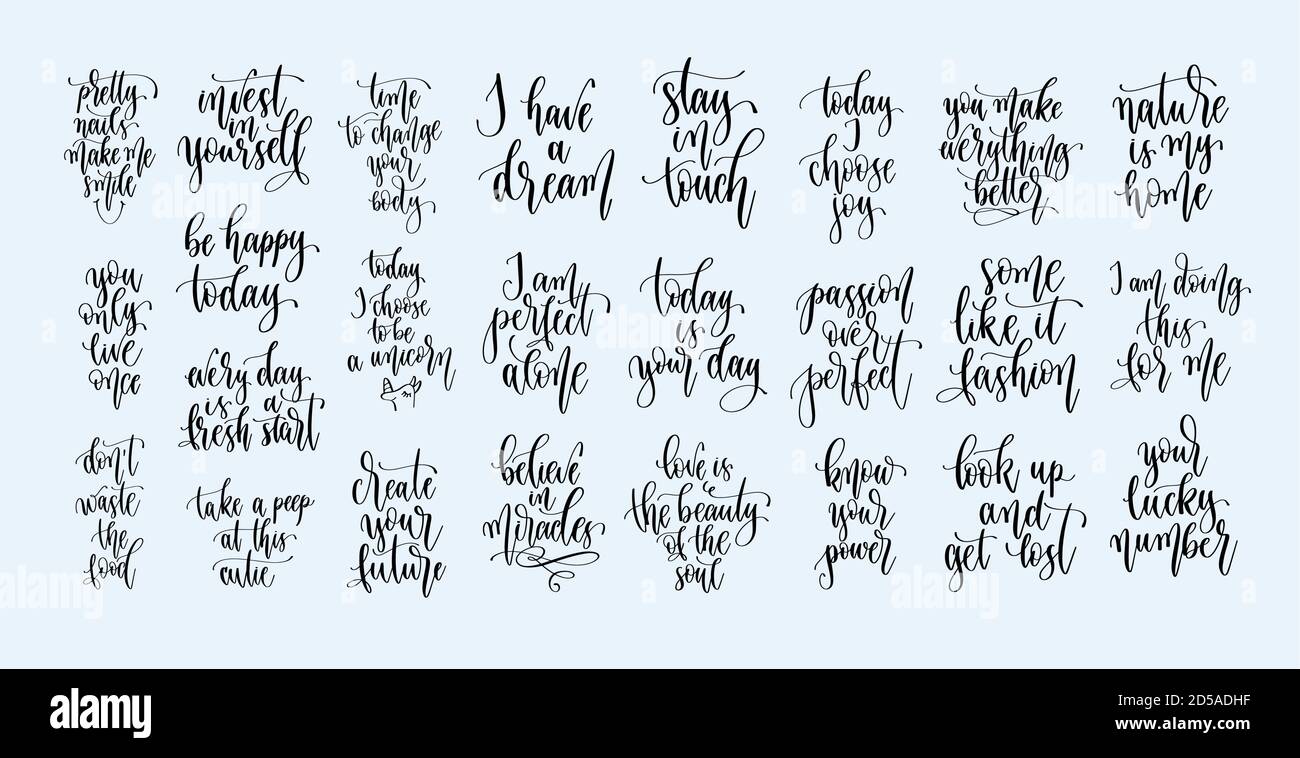 pretty
nails
make me
smile
you
only
live
once
don't
waste
the
food
invest
in
yourself
be happy
today
every day
is a
fresh start
take a peep
at this
cutie
time
to change
your
body
today
I choose
to be
a unicorn
create
your
future
I have
a
dream
I am
perfect
alone
believe
in
miracles
stay
in
touch
today
is
your day
love is
the beauty
of the
soul
today
I
choose
joy
passion
over
perfect
know
your
power
you make
everything
better
some
like it
fashion
look up
and
get lost
nature
is my
home
I am doing
this
for me
your
lucky
number
alamy
alamy
alamy
alamy
alamy
alamy
alamy
Image ID: 2D5ADHF
www.alamy.com